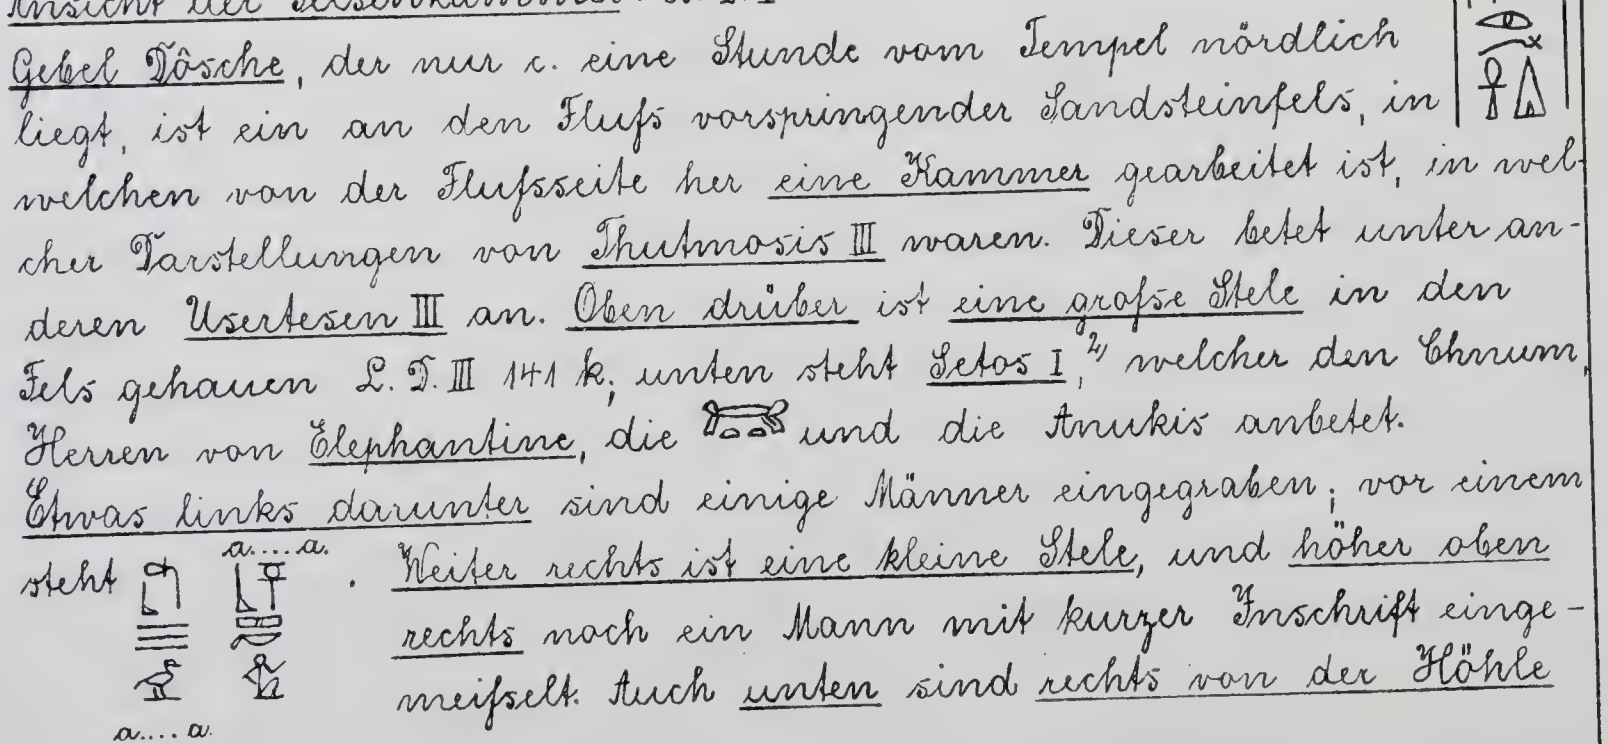 Ansicht der Felsenkammer.
Gebel Dôsche, der nur c. eine Stunde vom Tempel nördlich
liegt, ist ein an den Fluſs vorspringender Sandsteinfels, in
welchen von der Fluſsseite her eine Kammer gearbeitet ist, in wel-
cher Darstellungen von Thutmosis III waren. Dieser betet unter an-
deren Usertesen III an. Oben drüber ist eine groſse Stele in den
Fels gehauen L. D. III 141 k; unten steht Setos I,²⁾ welcher den Chnum,
Herren von Elephantine, die und die Anukis anbetet.
Etwas links darunter sind einige Männer eingegraben; vor einem
a....a.
steht . Weiter rechts ist eine kleine Stele, und höher oben
rechts noch ein Mann mit kurzer Inschrift einge-
meiſselt. Auch unten sind rechts von der Höhle
a....a.